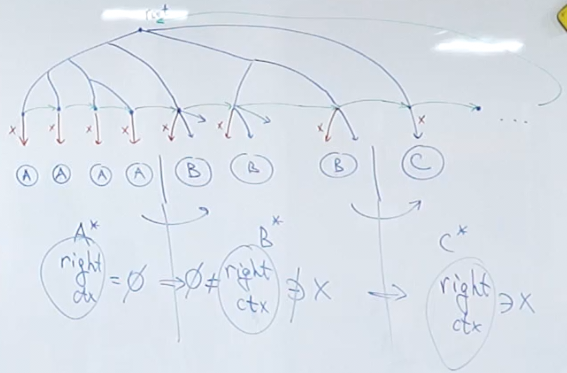 root
x x x x x x x
A A A A B B B C
A* B* C*
right ctx = ∅ ⇒ ∅ ≠ right ctx ∌ x ⇒ right ctx ∋ x
...